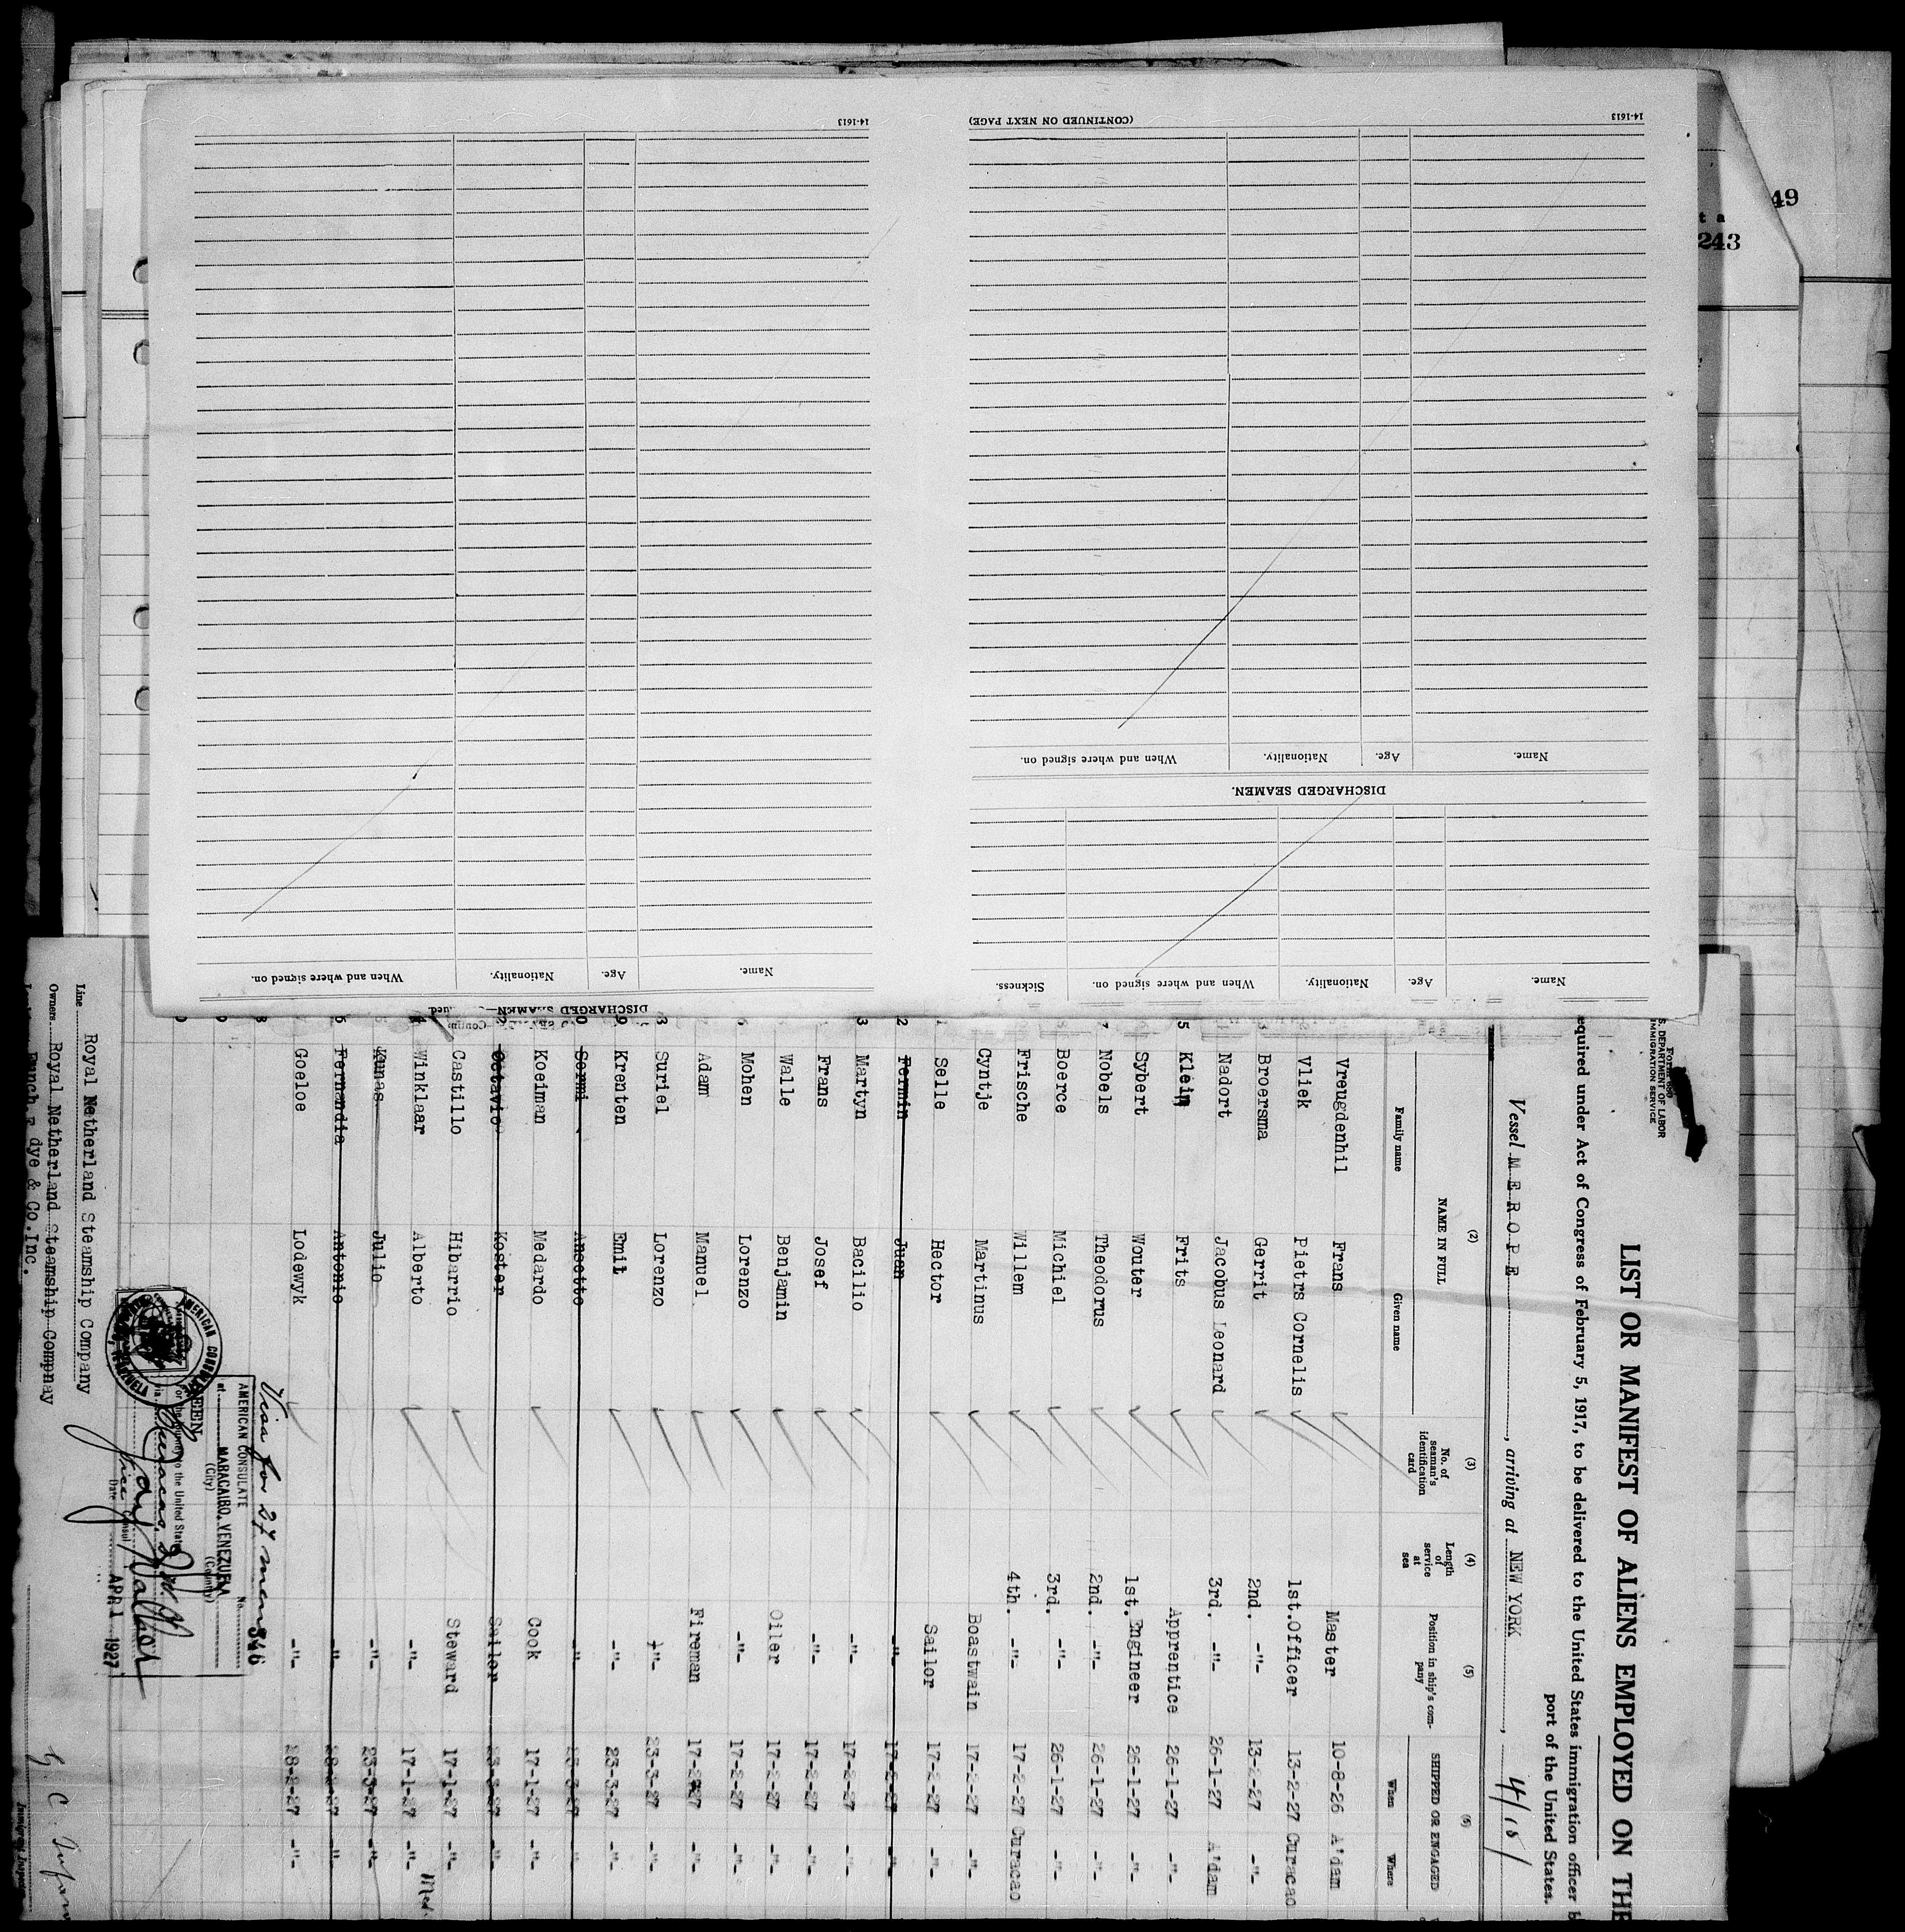 14-1613
(CONTINUED ON NEXT PAGE)
14-1613
Name. Age. Nationality. When and where signed on.
DISCHARGED SEAMEN.
Name. Age. Nationality. When and where signed on. Sickness.
Name. Age. Nationality. When and where signed on.
DISCHARGED SEAMEN
49
243
S. DEPARTMENT OF LABOR
IMMIGRATION SERVICE
LIST OR MANIFEST OF ALIENS EMPLOYED ON THE
equired under Act of Congress of February 5, 1917, to be delivered to the United States immigration officer b
port of the United States.
Vessel MEROPE, arriving at NEW YORK, 4/15/
(2) (3) (4) (5) (6)
NAME IN FULL No. of seaman's identification card Length of service at sea Position in ship's company SHIPPED OR ENGAGED
Family name Given name When Where
Vreugdenhil Frans Master 10-8-26 A'dam
Vliek Pietrs Cornelis 1st.Officer 13-2-27 Curacao
Broersma Gerrit 2nd. -"- 13-2-27 -"-
Nadort Jacobus Leonard 3rd. -"- 26-1-27 A'dam
5 Klein Frits Apprentice 26-1-27 -"-
Sybert Wouter 1st.Engineer 26-1-27 -"-
7 Nobels Theodorus 2nd. -"- 26-1-27 -"-
Boerce Michiel 3rd. -"- 26-1-27 -"-
Frische Willem 4th. -"- 17-2-27 Curacao
Cyntje Martinus Boastwain 17-2-27 -"-
Selle Hector Sailor 17-2-27 -"-
2 Fermin Juan -"- 17-2-27 -"-
3 Martyn Bacilio -"- 17-2-27 -"-
Frans Josef -"- 17-2-27 -"-
Walle Benjamin Oiler 17-2-27 -"-
6 Mohen Lorenzo -"- 17-2-27 -"-
Adam Manuel Fireman 17-2-27 -"-
8 Suriel Lorenzo -"- 23-3-27 -"-
9 Krenten Emil -"- 23-3-27 -"-
0 Sermi Ansetto -"- 23-3-27 -"-
Koeiman Medardo Cook 17-1-27 -"-
Octavio Koster Sailor 23-3-27 -"-
Castillo Hibarrio Steward 17-1-27 -"-
4 Winklaar Alberto -"- 17-1-27 -"-
Kunas Julio -"- 23-3-27 -"-
6 Fernandia Antonio -"- 28-2-27 -"-
Goeloe Lodewyk -"- 28-2-27 -"-
Visa for 27 men
AMERICAN CONSULATE No. 346
at MARACAIBO, VENEZUELA
(City) (Country)
SEEN
For the journey to the United States
via Curacao
Vice Consul
Date APR 1 1927
Line Royal Netherland Steamship Company
Owners Royal Netherland Steamship Compnay
Funch, E dye & Co.Inc.
Immigrant Inspector